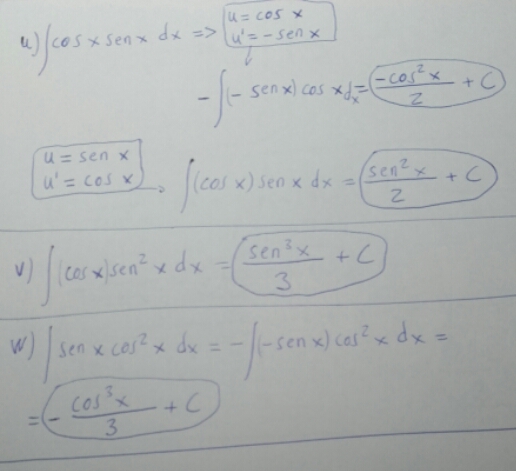 u) ∫cos x sen x dx => u = cos x
u' = -sen x
-∫(-sen x) cos x dx = -cos²x/2 + C
u = sen x
u' = cos x
∫(cos x) sen x dx = sen²x/2 + C
v) ∫(cos x) sen² x dx = sen³x/3 + C
w) ∫sen x cos² x dx = -∫(-sen x) cos² x dx =
= - cos³x/3 + C